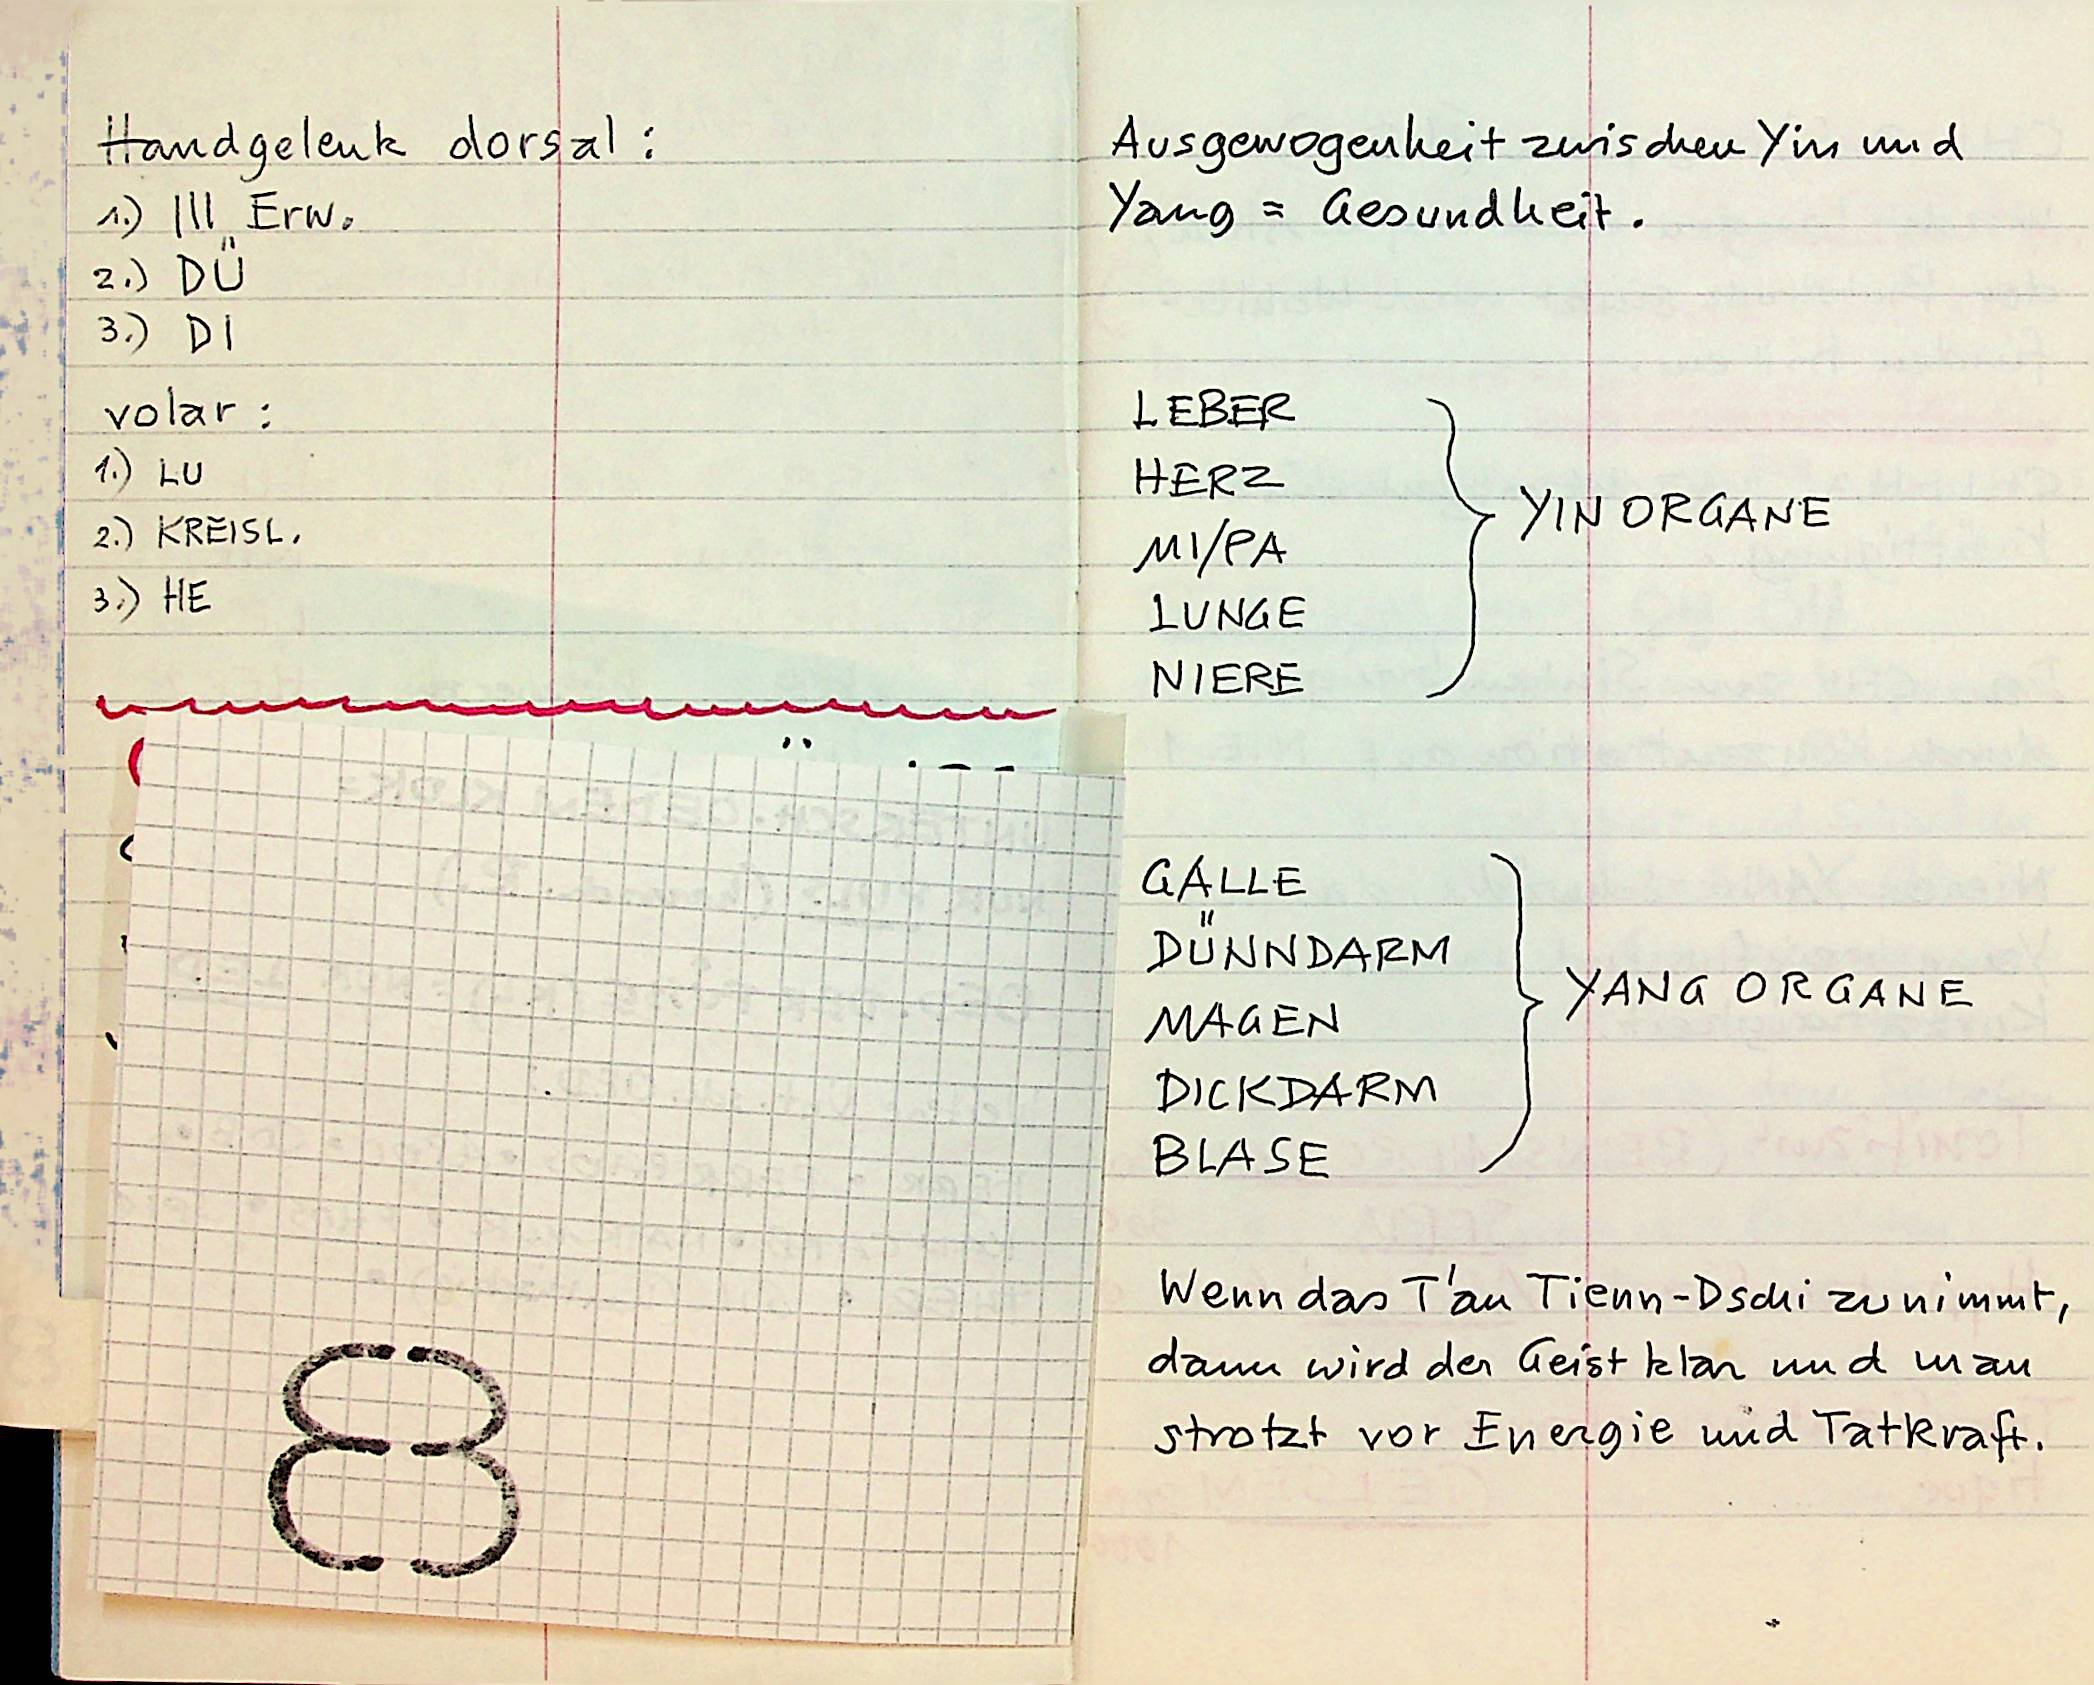 Handgelenk dorsal:
1.) III Erw.
2.) DÜ
3.) DI
volar:
1.) LU
2.) KREISL.
3.) HE
8
Ausgewogenheit zwischen Yin und
Yang = Gesundheit.
LEBER
HERZ
MI/PA
LUNGE
NIERE
YIN ORGANE
GALLE
DÜNNDARM
MAGEN
DICKDARM
BLASE
YANG ORGANE
Wenn das T'an Tienn-Dschi zunimmt,
dann wird der Geist klar und man
strotzt vor Energie und Tatkraft.